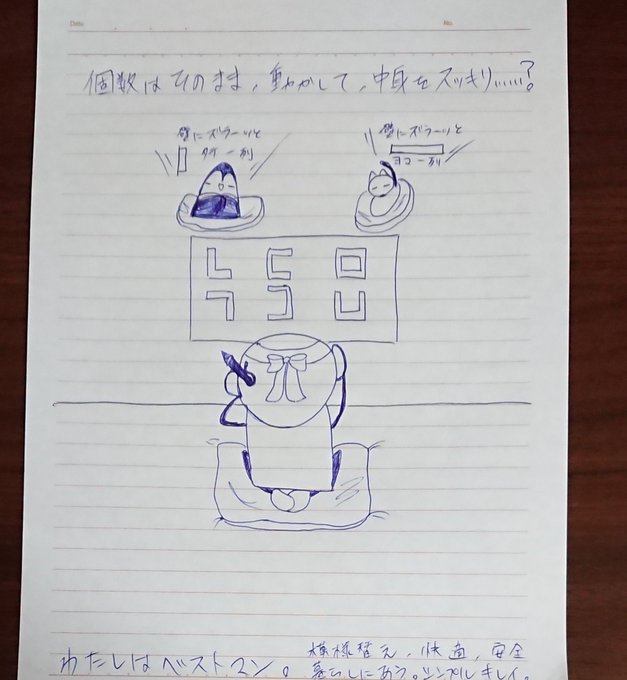 Date
No.
個数はそのまま,動かして,中身をスッキリ……?
壁にズラーッと
タテ一列
壁にズラーッと
ヨコ一列
わたしはベストマン。
模様替え,快適,安全
暮らしにあう。シンプルキレイ。